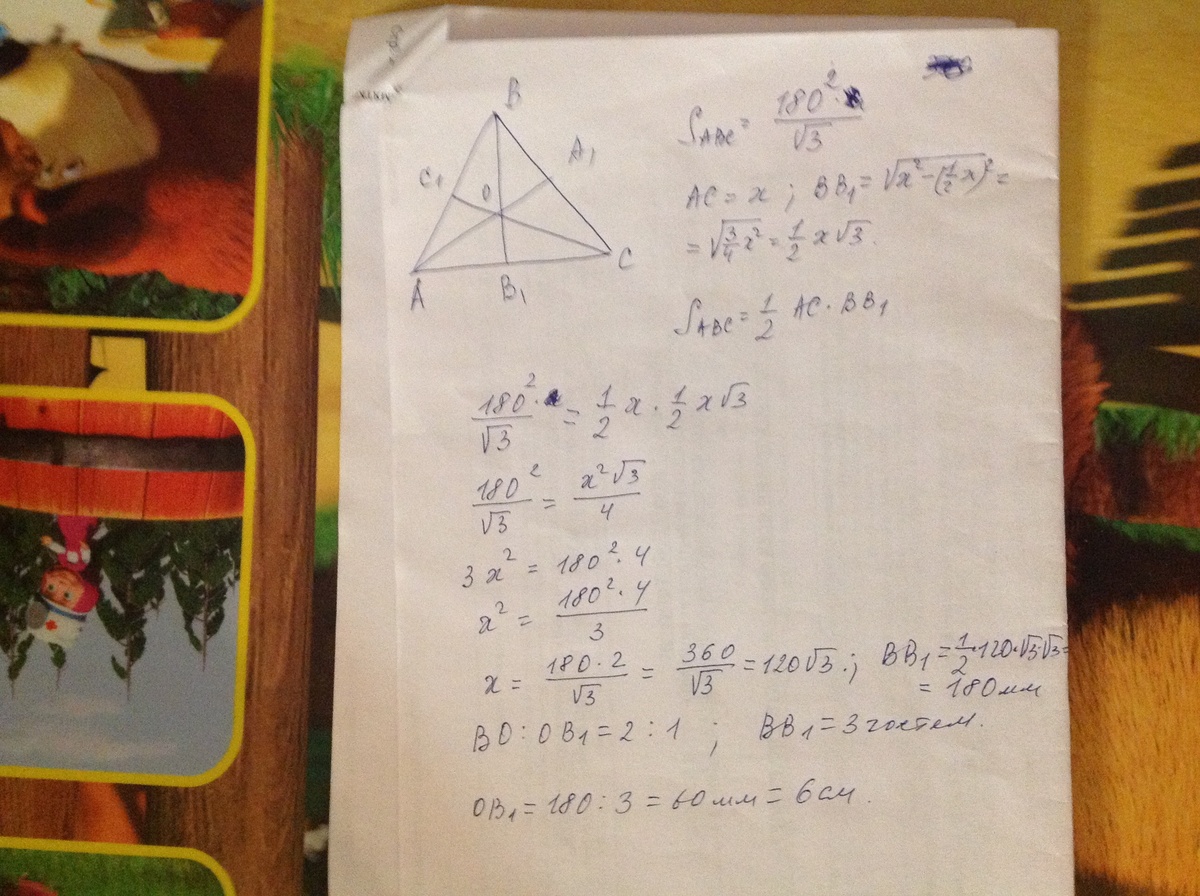 B
A₁
C₁
O
A
B₁
C
S_ABC = 180² · / √3
AC = x ; BB₁ = √(x² - (½x)²) =
= √(¾x²) = ½ x√3.
S_ABC = ½ AC · BB₁
180² · / √3 = ½ x · ½ x√3
180² / √3 = x²√3 / 4
3x² = 180² · 4
x² = 180² · 4 / 3
x = 180 · 2 / √3 = 360 / √3 = 120√3 ; BB₁ = ½ · 120 · √3 · √3 =
= 180 мм
BO : OB₁ = 2 : 1 ; BB₁ = 3 частям.
OB₁ = 180 : 3 = 60 мм = 6 см.